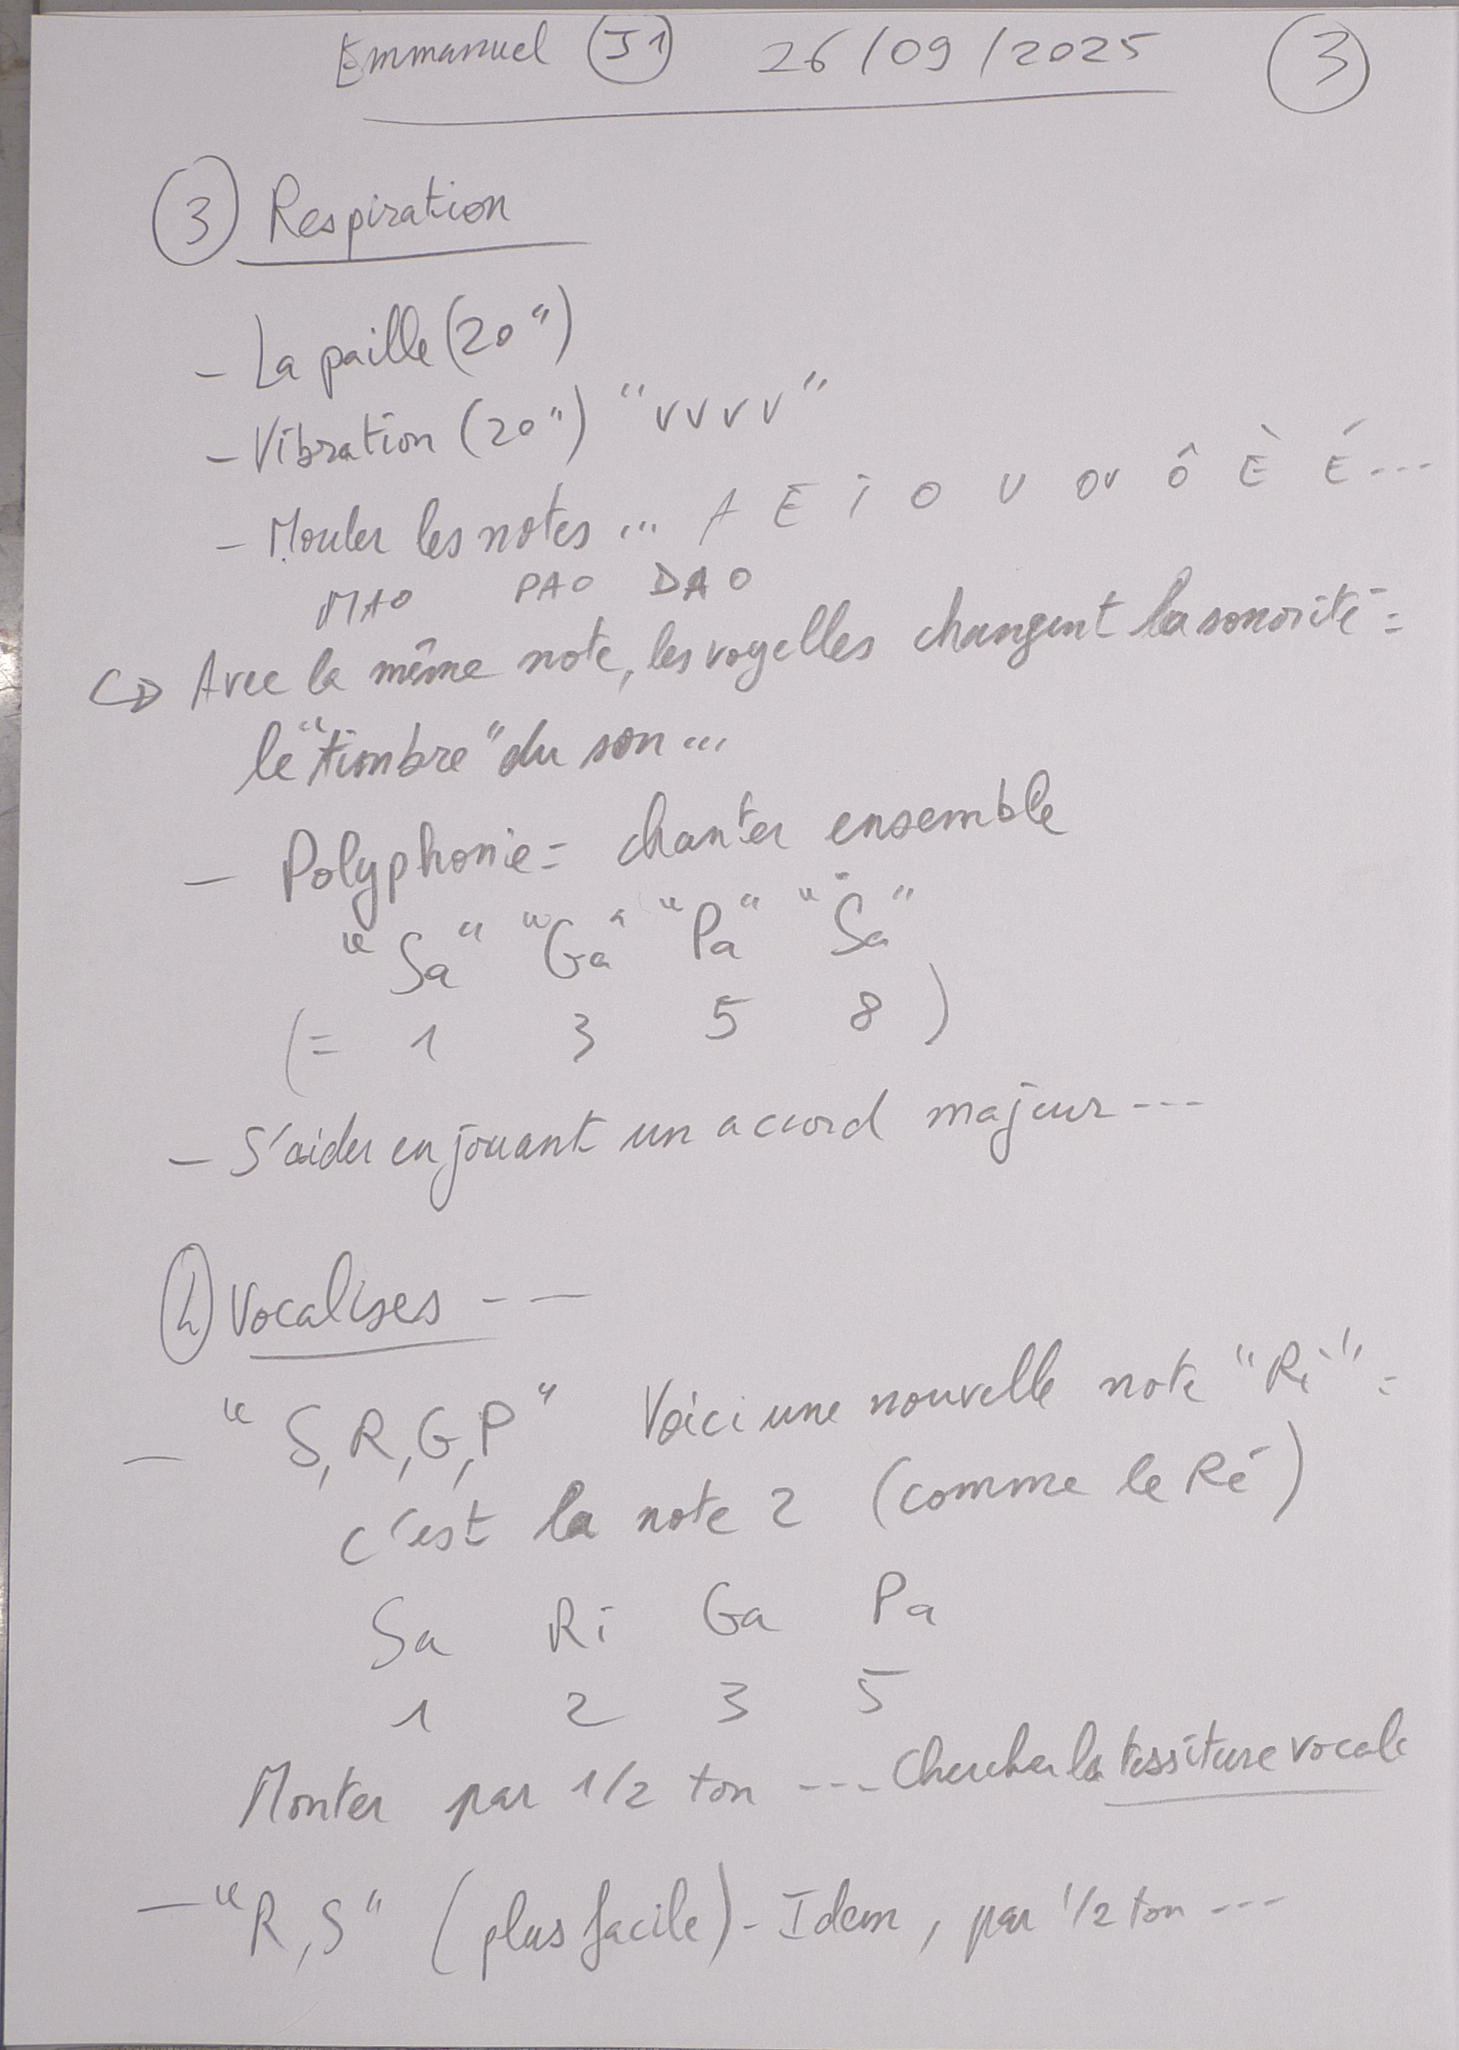 Emmanuel (J1) 26/09/2025 (3)
(3) Respiration
- La paille (20")
- Vibration (20") "VVVV"
- Mouler les notes ... A E I O U OU Ô È É ...
MAO PAO DAO
↪ Avec la même note, les voyelles changent la sonorité =
le "timbre" du son ...
- Polyphonie = chanter ensemble
"Sa" "Ga" "Pa" "Ṡa"
(= 1 3 5 8)
- S'aider en jouant un accord majeur ---
(4) Vocalises ---
- "S, R, G, P" Voici une nouvelle note "Ri" =
c'est la note 2 (comme le Ré)
Sa Ri Ga Pa
1 2 3 5
Monter par 1/2 ton --- Chercher la tessiture vocale
- "R, S" (plus facile) - Idem, par 1/2 ton ---